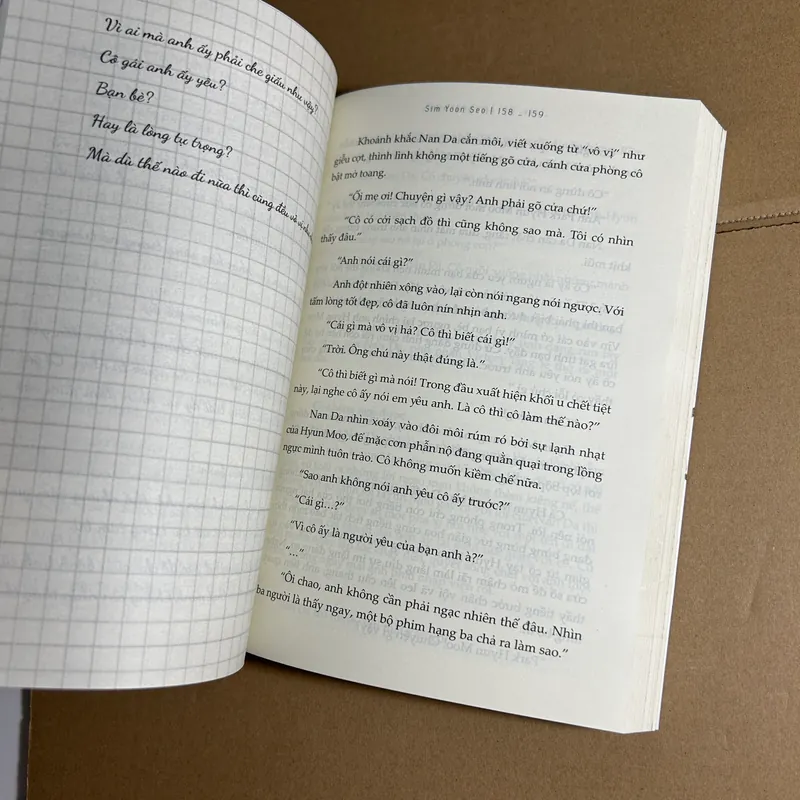 Vì ai mà anh ấy phải che giấu như vậy?
Cô gái anh ấy yêu?
Bạn bè?
Hay là lòng tự trọng?
Mà dù thế nào đi nữa thì cũng đều vô vị
Sim Yoon Seo | 158 - 159
Khoảnh khắc Nan Da cắn môi, viết xuống từ “vô vị” như
giễu cợt, thình lình không một tiếng gõ cửa, cánh cửa phòng cô
bật mở toang.
“Ối mẹ ơi! Chuyện gì vậy? Anh phải gõ cửa chứ!”
“Cô có cởi sạch đồ thì cũng không sao mà. Tôi có nhìn
thấy đâu.”
“Anh nói cái gì?”
Anh đột nhiên xông vào, lại còn nói ngang nói ngược. Với
tấm lòng tốt đẹp, cô đã luôn nín nhịn anh.
“Cái gì mà vô vị hả? Cô thì biết cái gì!”
“Trời. Ông chú này thật đúng là.”
“Cô thì biết gì mà nói! Trong đầu xuất hiện khối u chết tiệt
này, lại nghe cô ấy nói em yêu anh. Là cô thì cô làm thế nào?”
Nan Da nhìn xoáy vào đôi môi rúm ró bởi sự lạnh nhạt
của Hyun Moo, để mặc cơn phẫn nộ đang quằn quại trong lồng
ngực mình tuôn trào. Cô không muốn kiềm chế nữa.
“Sao anh không nói anh yêu cô ấy trước?”
“Cái gì...?”
“Vì cô ấy là người yêu của bạn anh à?”
“...”
“Ôi chao, anh không cần phải ngạc nhiên thế đâu. Nhìn
ba người là thấy ngay, một bộ phim hạng ba chả ra làm sao.”